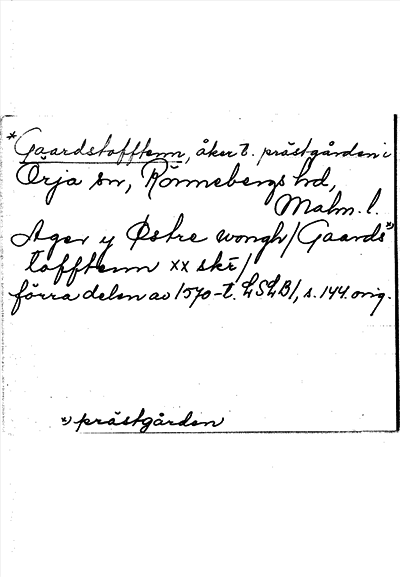 *Gaardstofftenn, åker t. prästgården i
Örja sn, Rönnebergs hd,
Malm. l.
Ager y Østre wongh/Gaards*)
tofftenn xx skr/
förra delen av 1570-t. LSLB1, s. 144. orig.
*) prästgården